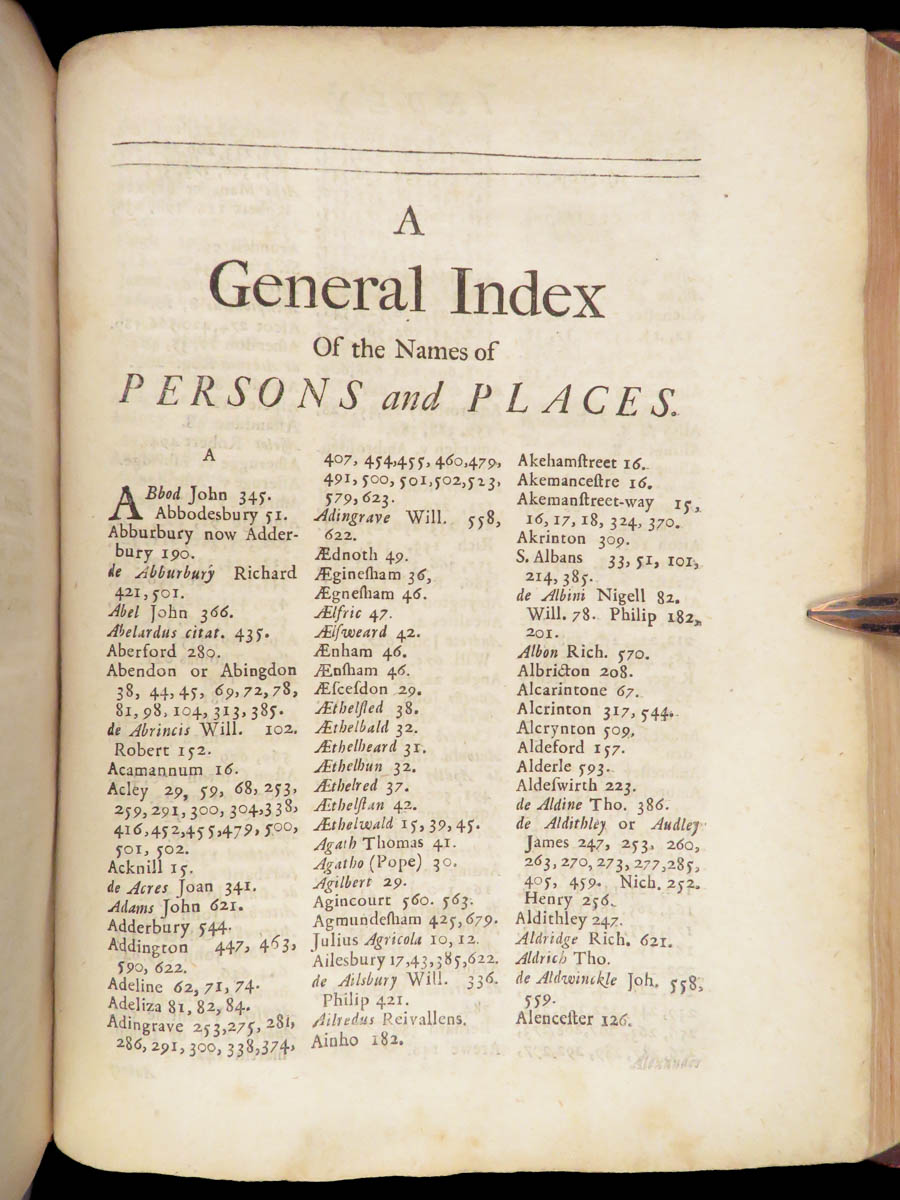 A
General Index
Of the Names of
PERSONS and PLACES.
A
ABbod John 345.
Abbodesbury 51.
Abburbury now Adder-
bury 190.
de Abburbury Richard
421, 501.
Abel John 366.
Abelardus citat. 435.
Aberford 280.
Abendon or Abingdon
38, 44, 45, 69, 72, 78,
81, 98, 104, 313, 385.
de Abrincis Will. 102.
Robert 152.
Acamannum 16.
Acley 29, 59, 68, 253,
259, 291, 300, 304, 338,
416, 452, 455, 479, 500,
501, 502.
Acknill 15.
de Acres Joan 341.
Adams John 621.
Adderbury 544.
Addington 447, 463,
590, 622.
Adeline 62, 71, 74.
Adeliza 81, 82, 84.
Adingrave 253, 275, 281,
286, 291, 300, 338, 374,
407, 454, 455, 460, 479,
491, 500, 501, 502, 523,
579, 623.
Adingrave Will. 558,
622.
Ædnoth 49.
Ægineſham 36,
Ægneſham 46.
Ælfric 47.
Ælſweard 42.
Ænham 46.
Ænſham 46.
Æſceſdon 29.
Æthelfled 38.
Æthelbald 32.
Æthelheard 31.
Æthelhun 32.
Æthelred 37.
Æthelſtan 42.
Æthelwald 15, 39, 45.
Agath Thomas 41.
Agatho (Pope) 30.
Agilbert 29.
Agincourt 560. 563.
Agmundeſham 425, 679.
Julius Agricola 10, 12.
Ailesbury 17, 43, 385, 622.
de Ailsbury Will. 336.
Philip 421.
Ailredus Reivallens.
Ainho 182.
Akehamſtreet 16.
Akemanceſtre 16.
Akemanſtreet-way 15,
16, 17, 18, 324, 370.
Akrinton 309.
S. Albans 33, 51, 101,
214, 385.
de Albini Nigell 82.
Will. 78. Philip 182,
201.
Albon Rich. 570.
Albricton 208.
Alcarintone 67.
Alcrinton 317, 544.
Alcrynton 509,
Aldeford 157.
Alderle 593.
Aldeſwirth 223.
de Aldine Tho. 386.
de Aldithley or Audley
James 247, 253, 260,
263, 270, 273, 277, 285,
405, 459. Nich. 252.
Henry 256.
Aldithley 247.
Aldridge Rich. 621.
Aldrich Tho.
de Aldwinckle Joh. 558,
559.
Alenceſter 126.